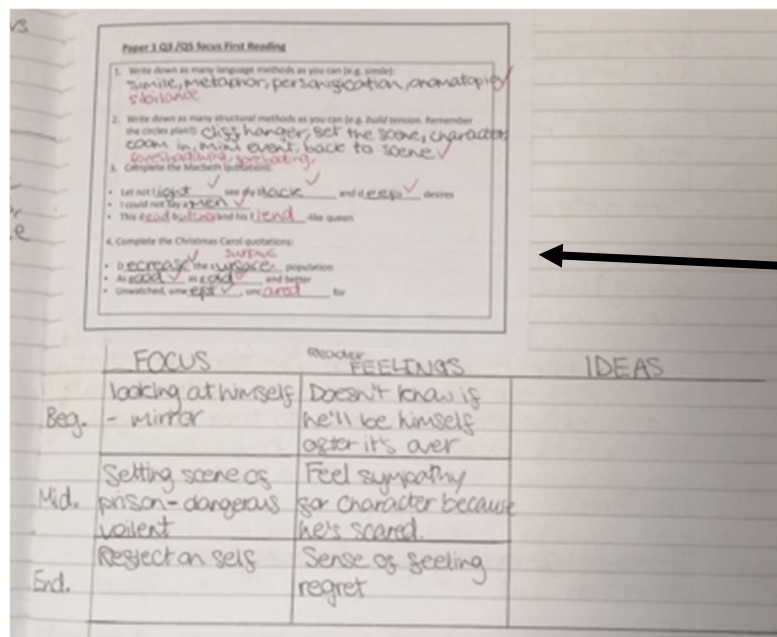 Paper 1 Q3 /Q5 focus First Reading
1. Write down as many language methods as you can (e.g. simile):
simile, metaphor, personification, onomatopia
sibilance
2. Write down as many structural methods as you can (e.g. build tension. Remember
the circles plan!): cliff hanger, set the scene, character,
zoom in, mini event, back to scene
foreshadowing,
3. Complete the Macbeth quotations:
Let not light see my black and deep desires
I could not say amen
This dead butcher and his fiend-like queen
4. Complete the Christmas Carol quotations:
surplus
Decrease the population
As good as gold and better
Unwatched, unwept, uncared for
FOCUS Reader FEELINGS IDEAS
Beg. looking at himself - mirror Doesn't know if he'll be himself after it's over
Mid. Setting scene of prison - dangerous voilent Feel sympathy for character because he's scared.
End. Reflect on self Sense of feeling regret